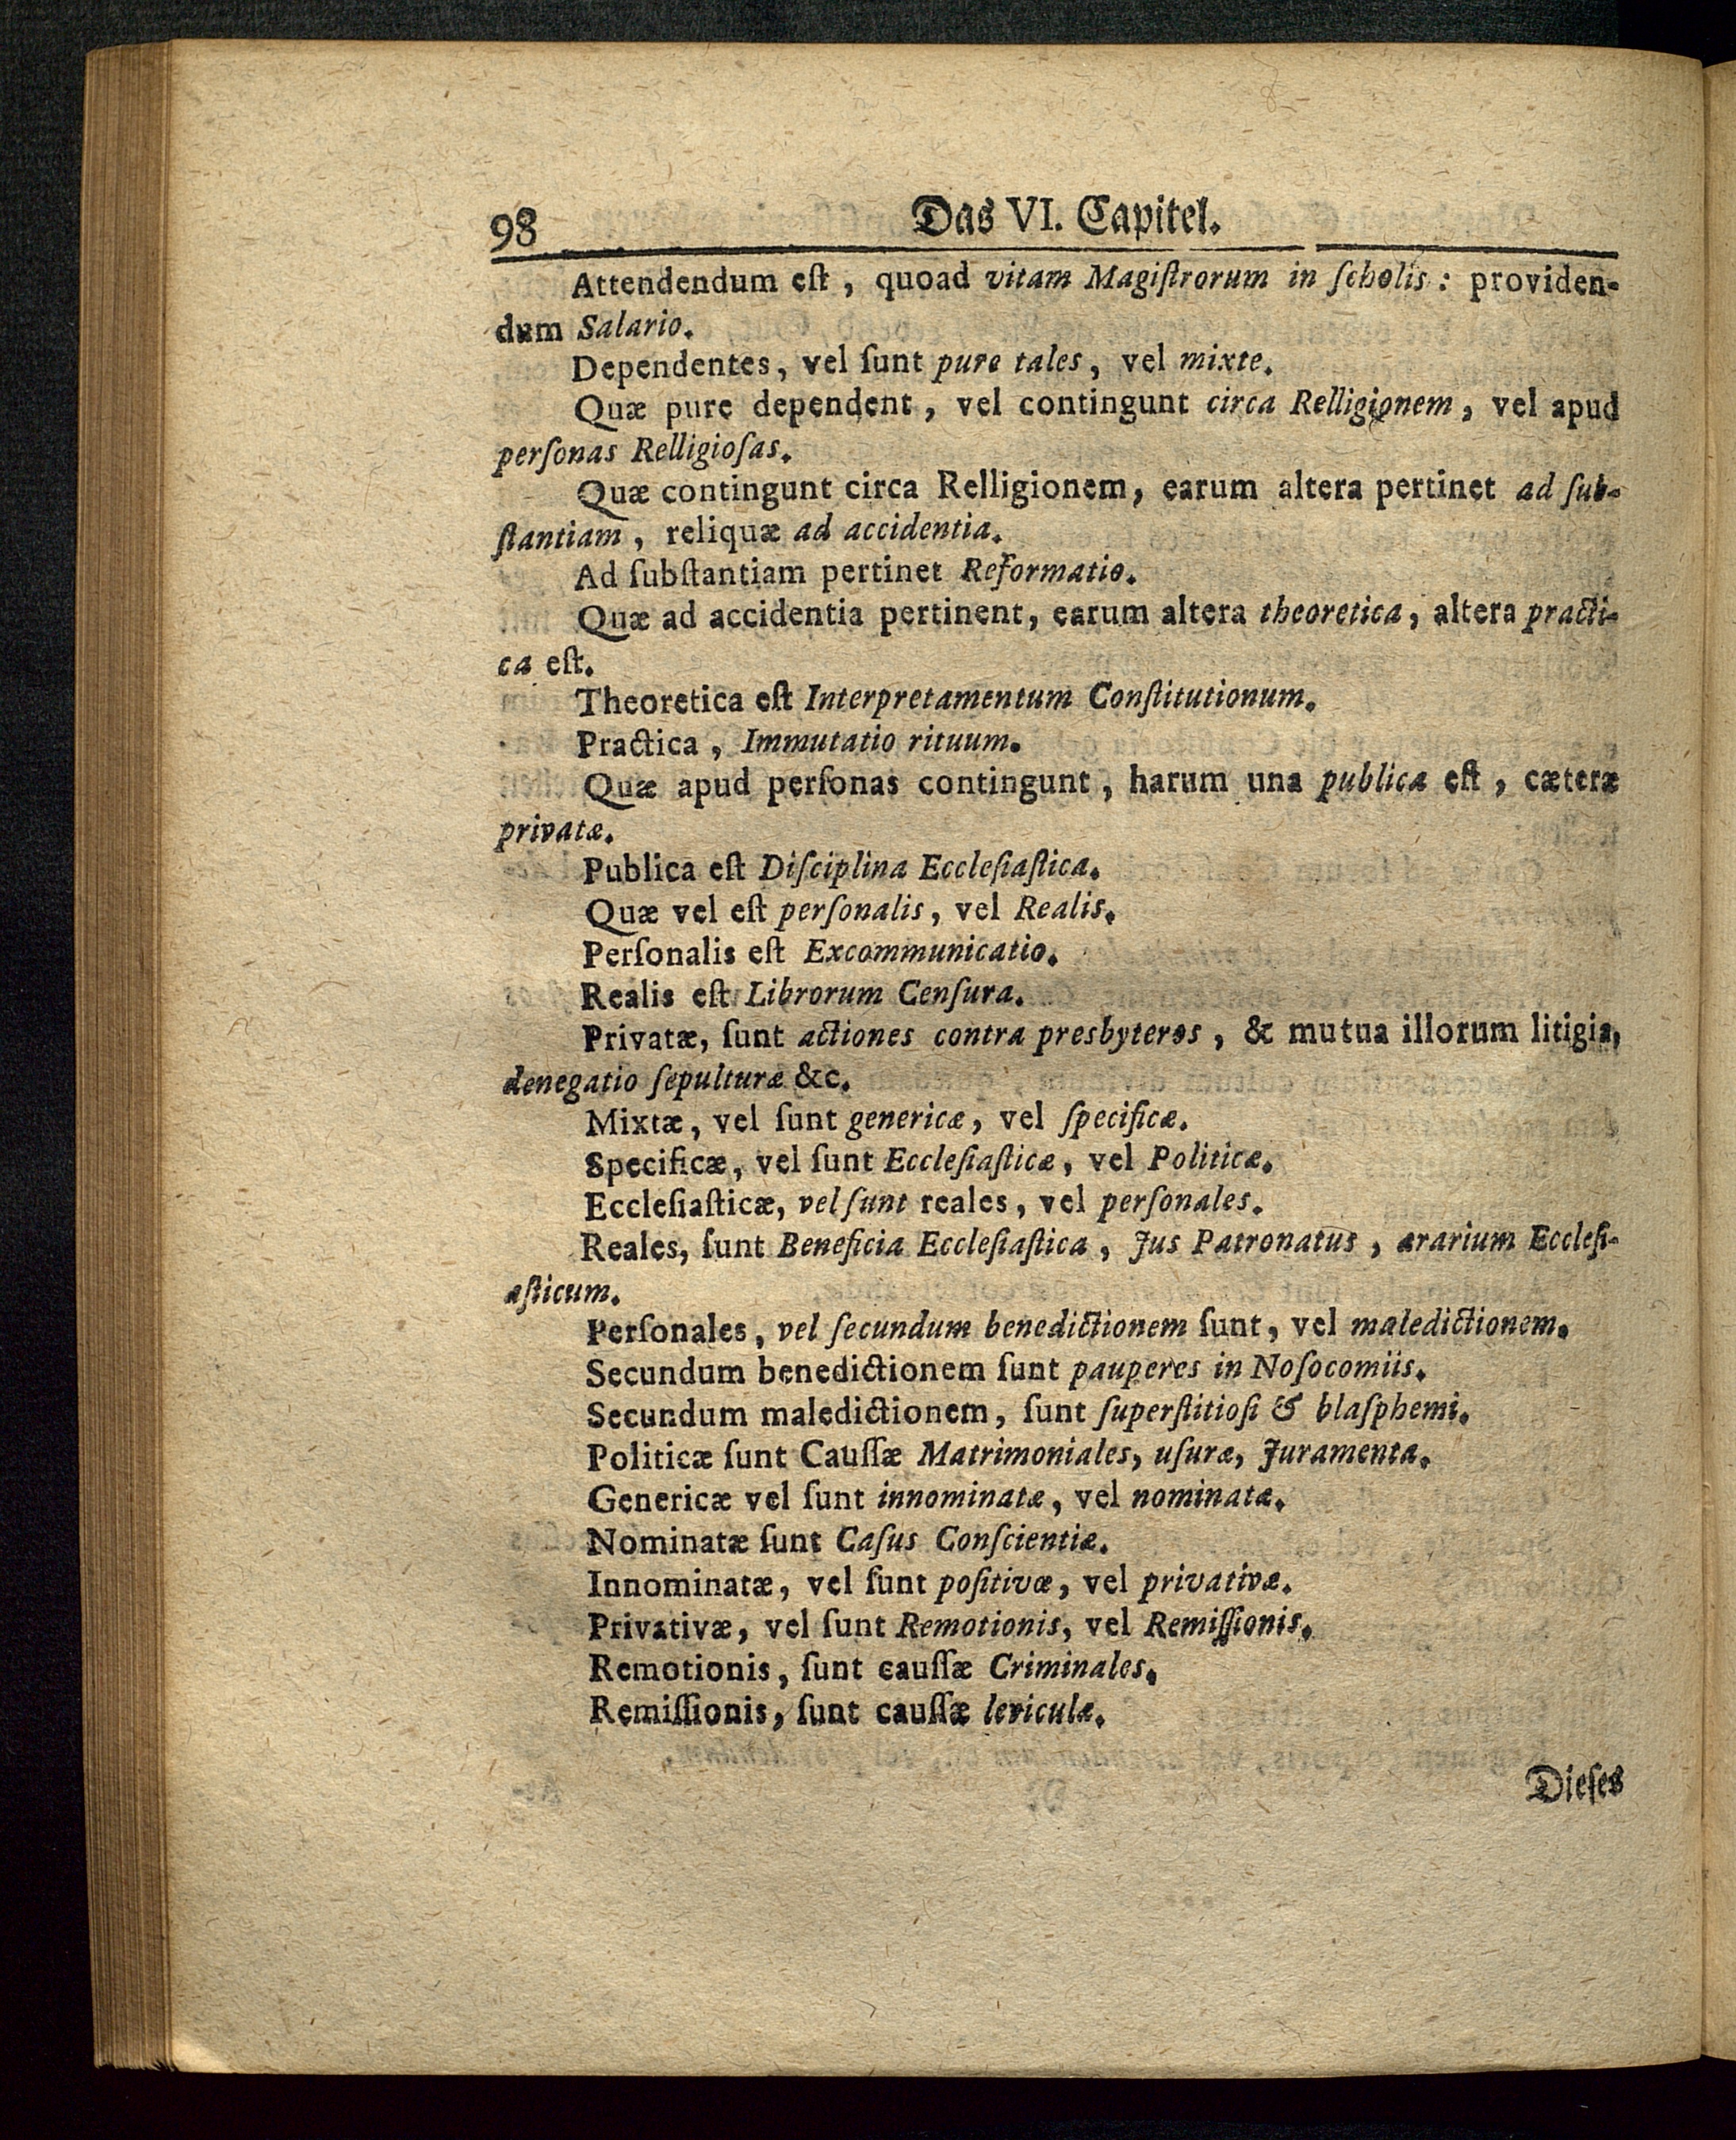 98 Das VI. Capitel.
Attendendum eſt, quoad vitam Magiſtrorum in ſcholis: providen-
dum Salario.
Dependentes, vel ſunt pure tales, vel mixte.
Quæ pure dependent, vel contingunt circa Relligionem, vel apud
perſonas Relligioſas.
Quæ contingunt circa Relligionem, earum altera pertinet ad ſub-
ſtantiam, reliquæ ad accidentia.
Ad ſubſtantiam pertinet Reformatio.
Quæ ad accidentia pertinent, earum altera theoretica, altera practi-
ca eſt.
Theoretica eſt Interpretamentum Conſtitutionum.
Practica, Immutatio rituum.
Quæ apud perſonas contingunt, harum una publica eſt, cæteræ
privatæ.
Publica eſt Diſciplina Eccleſiaſtica.
Quæ vel eſt perſonalis, vel Realis.
Perſonalis eſt Excommunicatio.
Realis eſt Librorum Cenſura.
Privatæ, ſunt actiones contra presbyteros, & mutua illorum litigia,
denegatio ſepulturæ &c.
Mixtæ, vel ſunt genericæ, vel ſpecificæ.
Specificæ, vel ſunt Eccleſiaſticæ, vel Politicæ.
Eccleſiaſticæ, vel ſunt reales, vel perſonales.
Reales, ſunt Beneficia Eccleſiaſtica, Jus Patronatus, ærarium Eccleſi-
aſticum.
Perſonales, vel ſecundum benedictionem ſunt, vel maledictionem.
Secundum benedictionem ſunt pauperes in Noſocomiis.
Secundum maledictionem, ſunt ſuperſtitioſi & blaſphemi.
Politicæ ſunt Cauſſæ Matrimoniales, uſuræ, Juramenta.
Genericæ vel ſunt innominatæ, vel nominatæ.
Nominatæ ſunt Caſus Conſcientiæ.
Innominatæ, vel ſunt poſitivæ, vel privativæ.
Privativæ, vel ſunt Remotionis, vel Remiſſionis.
Remotionis, ſunt cauſſæ Criminales.
Remiſſionis, ſunt cauſſæ leviculæ.
Dieſes